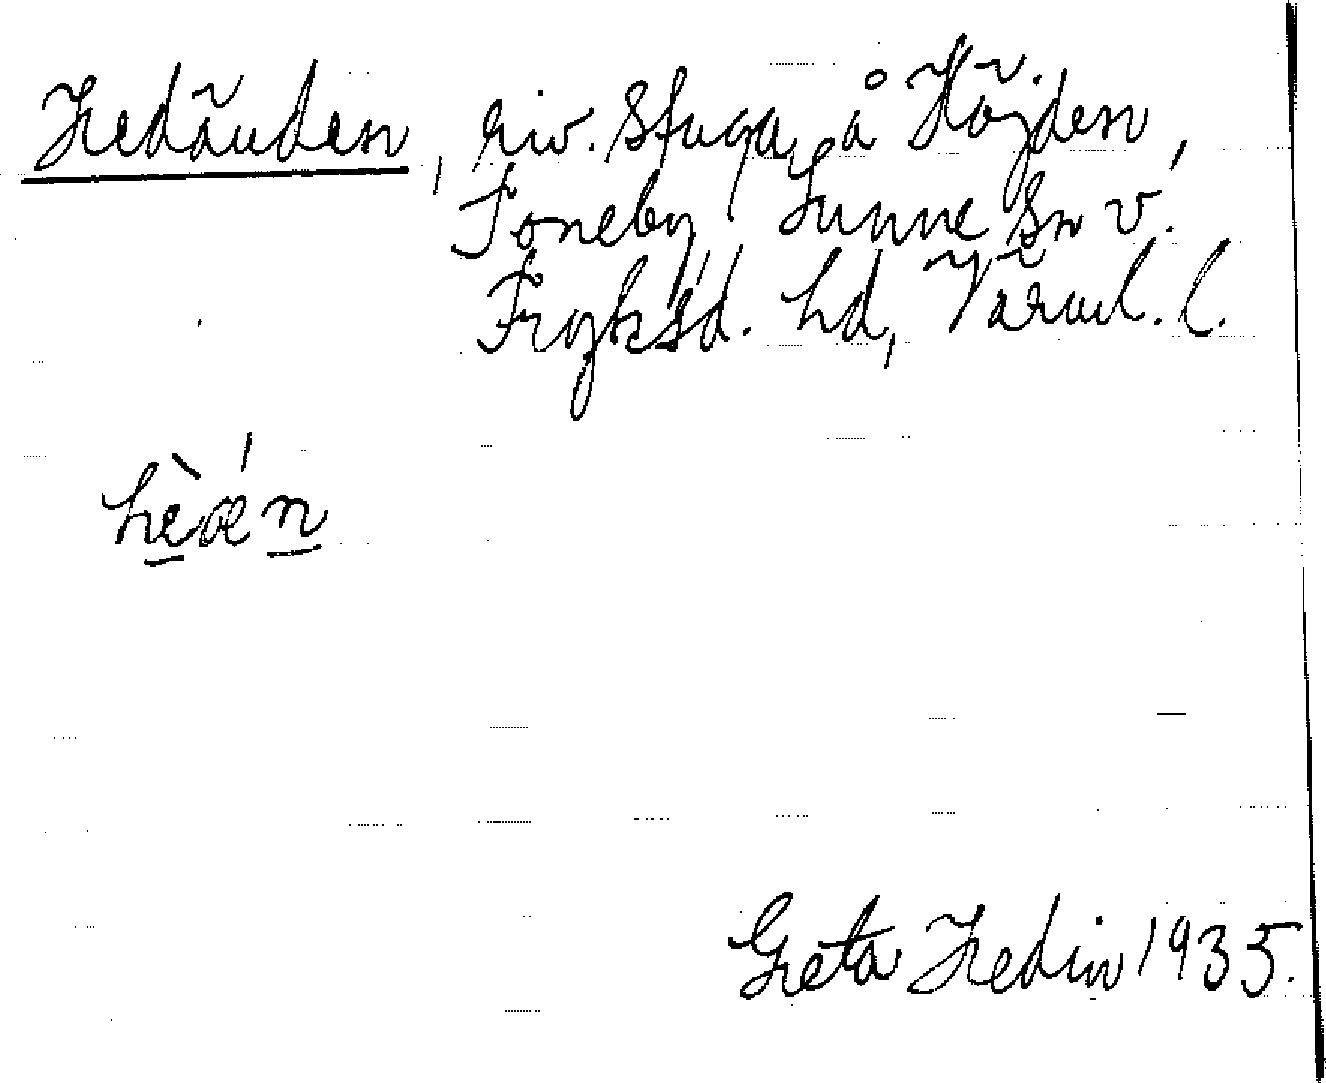 Hedänden, riv. Stuga å Höjden,
Toneby Sunne Sn V.
Fryksd. hd, Värml. l.
hèǽn
Greta Hedin 1935.